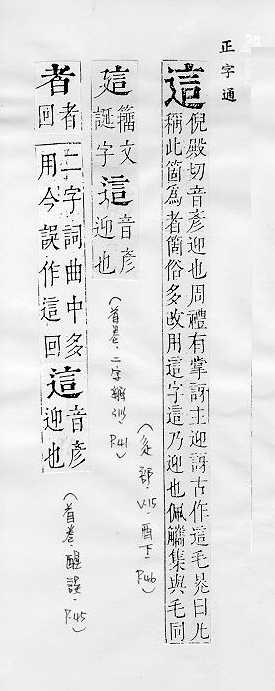 正字通
這
倪殿切音彥迎也周禮有掌訝主迎訝古作這毛晃曰凡
稱此箇為者箇俗多改用這字這乃迎也佩觿集與毛同
(辵部. V.15. 酉下. P.46)
籀文
誕字
這
音彥
迎也
(首卷. 二字辨似. P.41)
者
者
回
二字詞曲中多
用今誤作這回
這
音彥
迎也
(首卷. 醒誤. P.45)